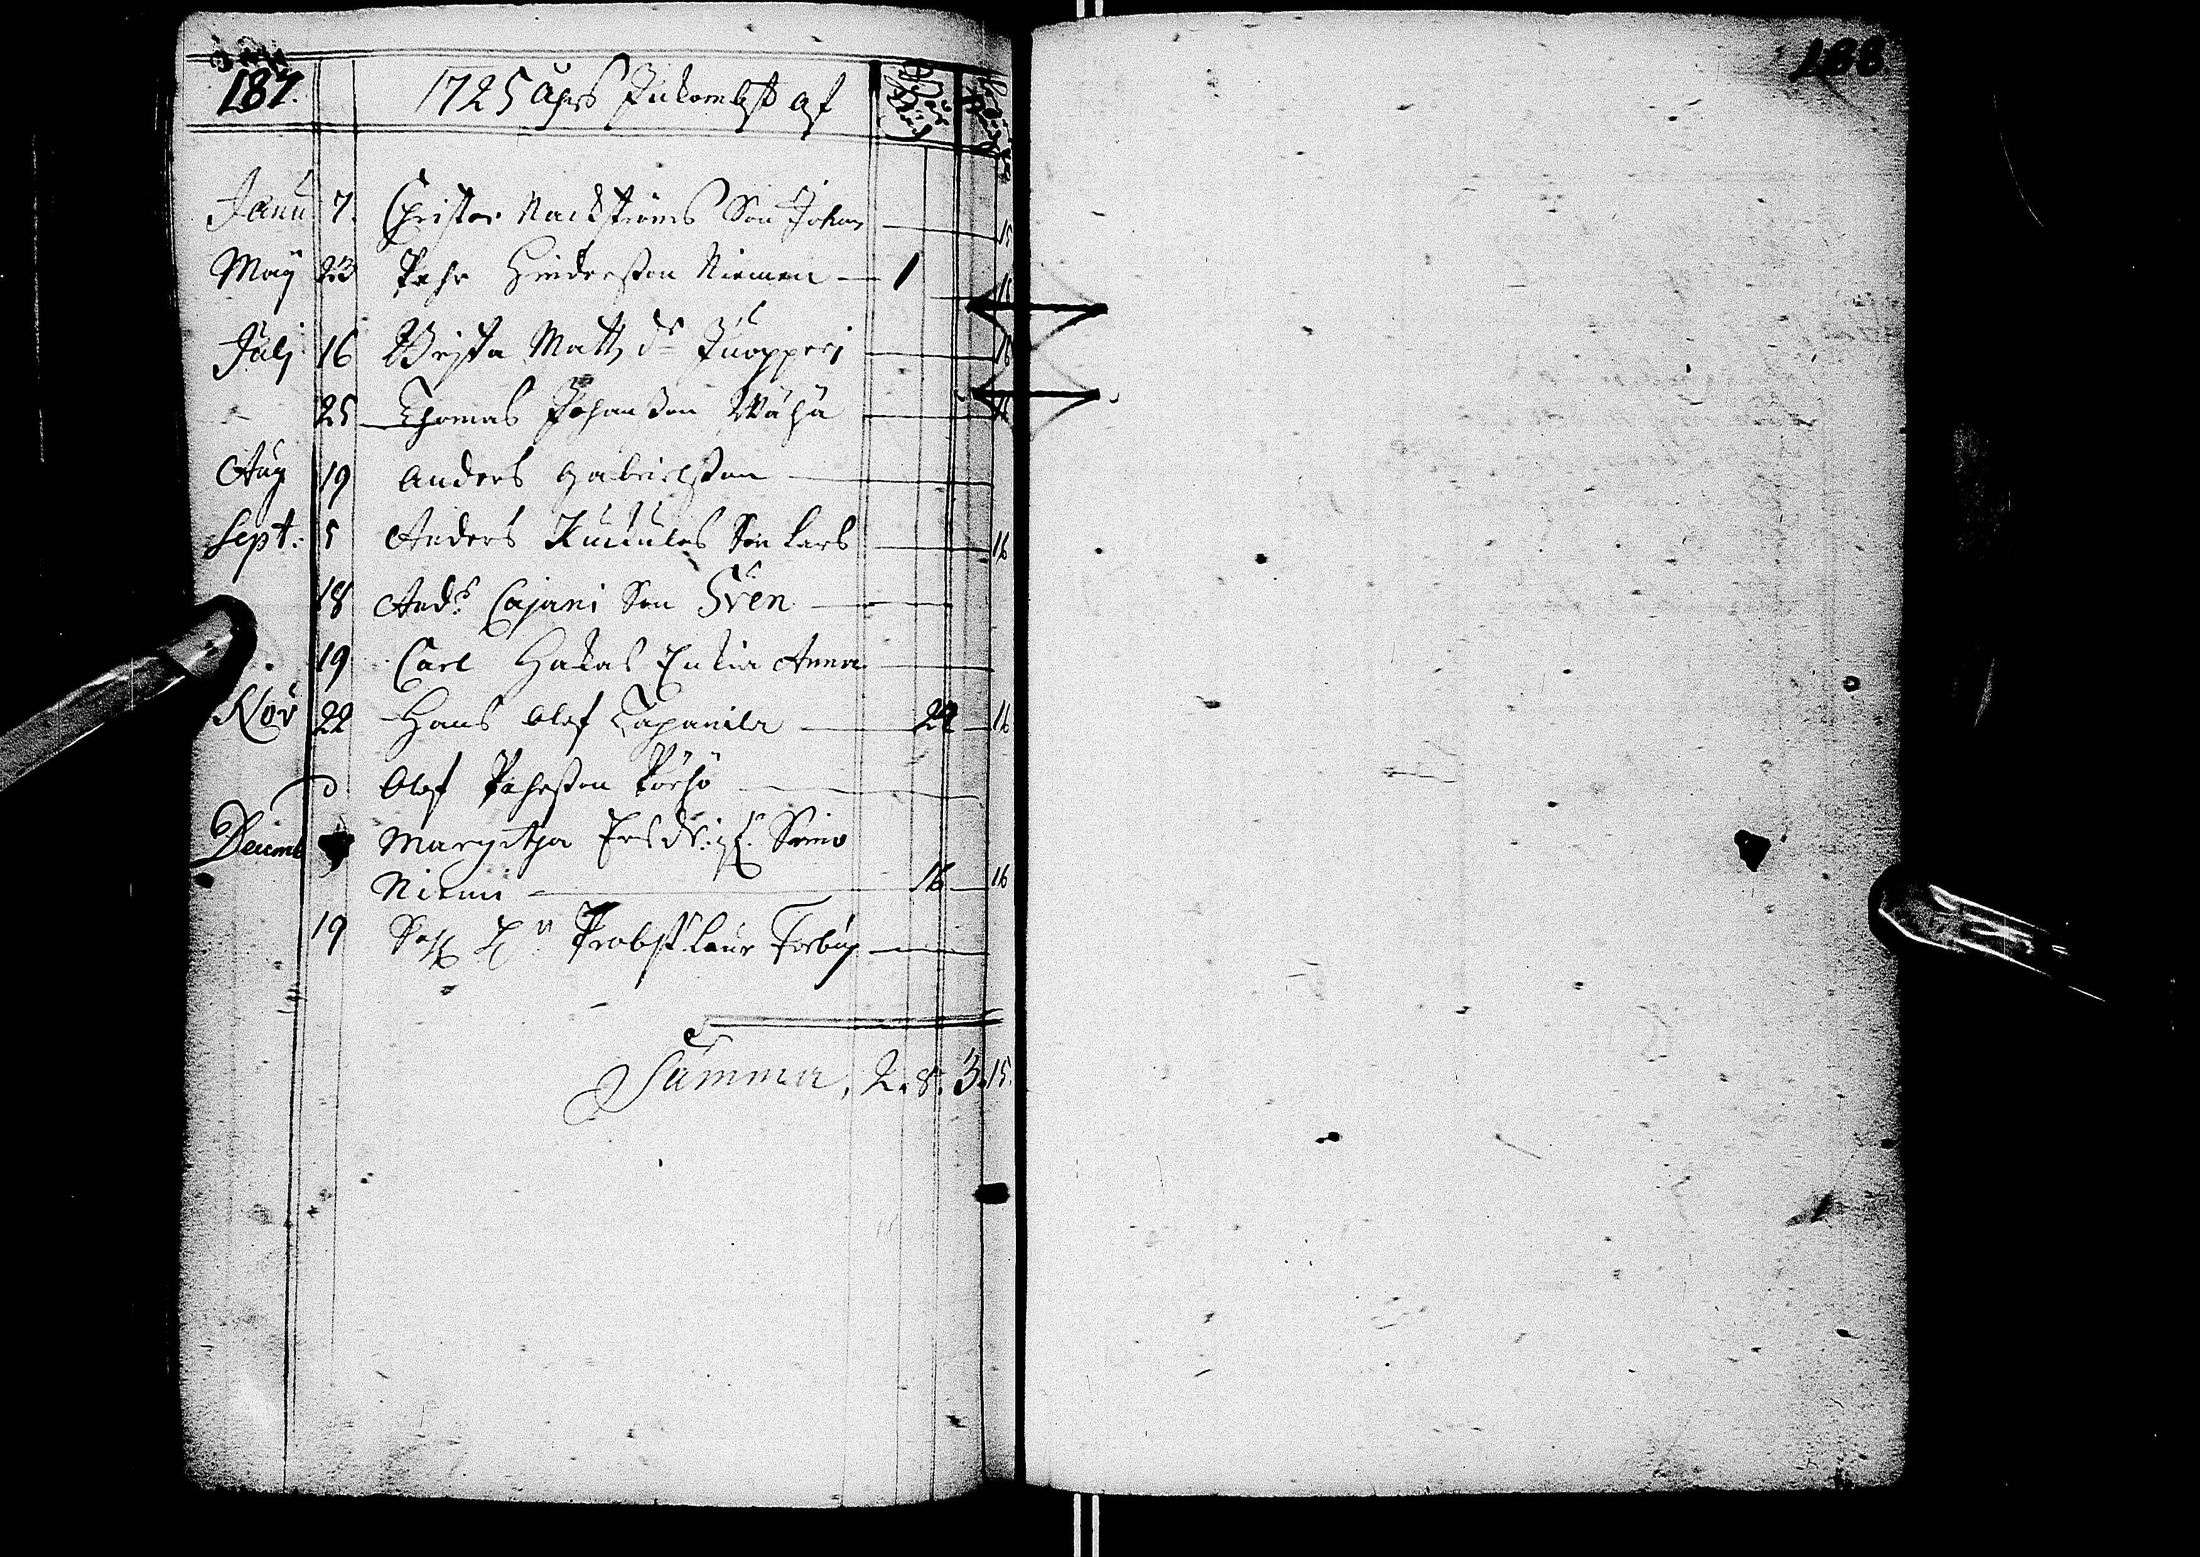 187.
1725 åhrs Inkombst af
Janu 7. Christer Nackströms Son Johan 15
Maÿ 23 Pehr Hindersson Niemen 1 16
Julj 16 Brjta Matts dr Juopperi 16
25 Thomas Johansson Wähä 16
Aug 19 Anders Gabrielsson
Sept: 5 Anders Kukules Son Lars 16
18 Andrs Cajani Son Sven
19 Carl Hakas Enkia Anna
Nov 22 Hans Olof Tapanila 24 16
D Olof Pehrsson Pörhö
Decemb Margetha Ers dr: Simo
Niemi 16 16
19 Sal Hr Probst Laur Forbus
Summa, 2. 8. 3. 15.
188